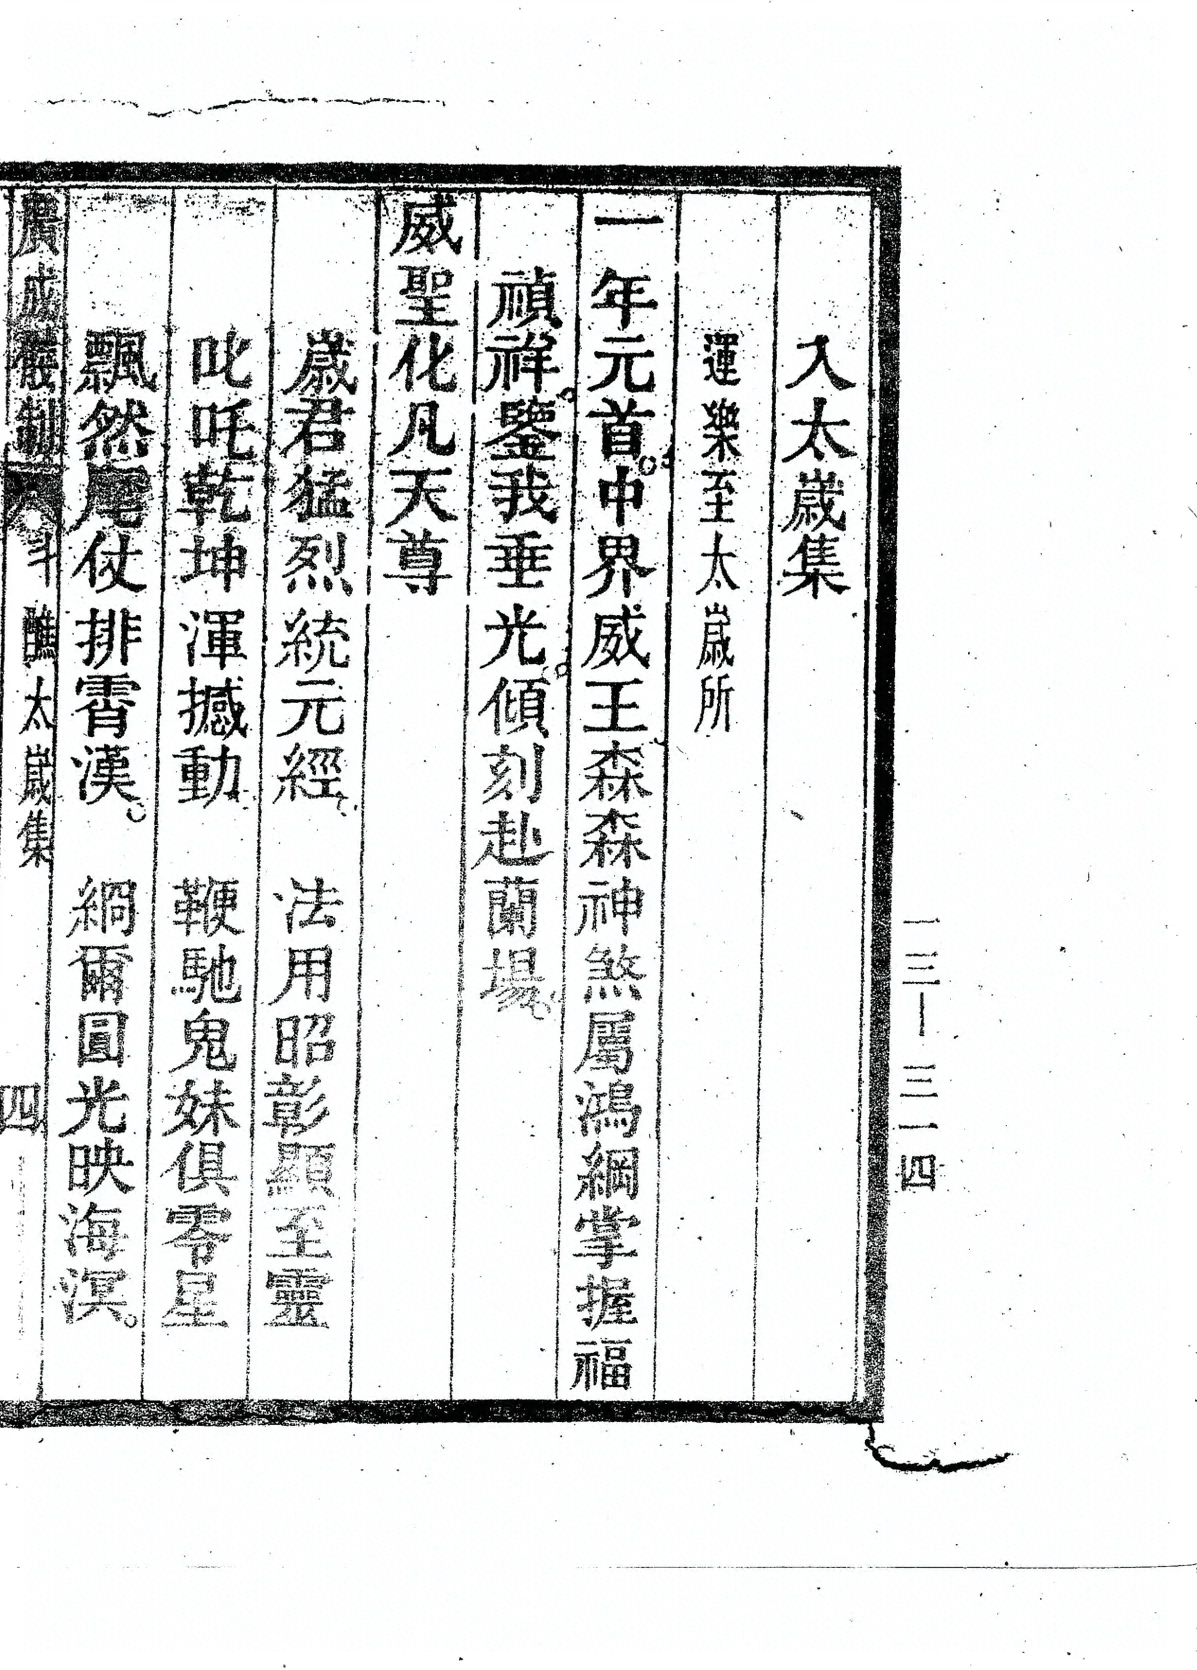 一三—三一四
入太歲集
運樂至太歲所
一年元首。中界威王森森神煞屬鴻綱掌握福
禎祥。鑒我垂光。傾刻赴蘭場。
威聖化凡天尊
歲君猛烈統元經 法用昭彰顯至靈
叱吒乾坤渾撼動 鞭馳鬼妹俱零星
飄然尾仗排霄漢。 綱爾圓光映海溟。
廣成儀制 斗醮太歲集 四